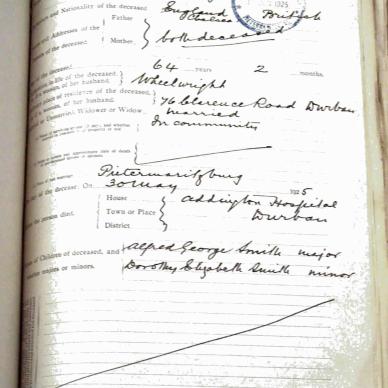 and Nationality of the deceased England British
1925
Addresses of the Father
Mother both deceased
of the deceased 64 years 2 months.
in life of the deceased Wheelwright
place of residence of the deceased 76 Clarence Road Durban
of her husband.
or Unmarried, Widower or Widow married
In community
Pietermaritzburg
of the deceased On 30 May 1925
the person died. House Addington Hospital
Town or Place Durban
District
of Children of deceased, and Alfred George Smith major
majors or minors. Dorothy Elizabeth Smith minor